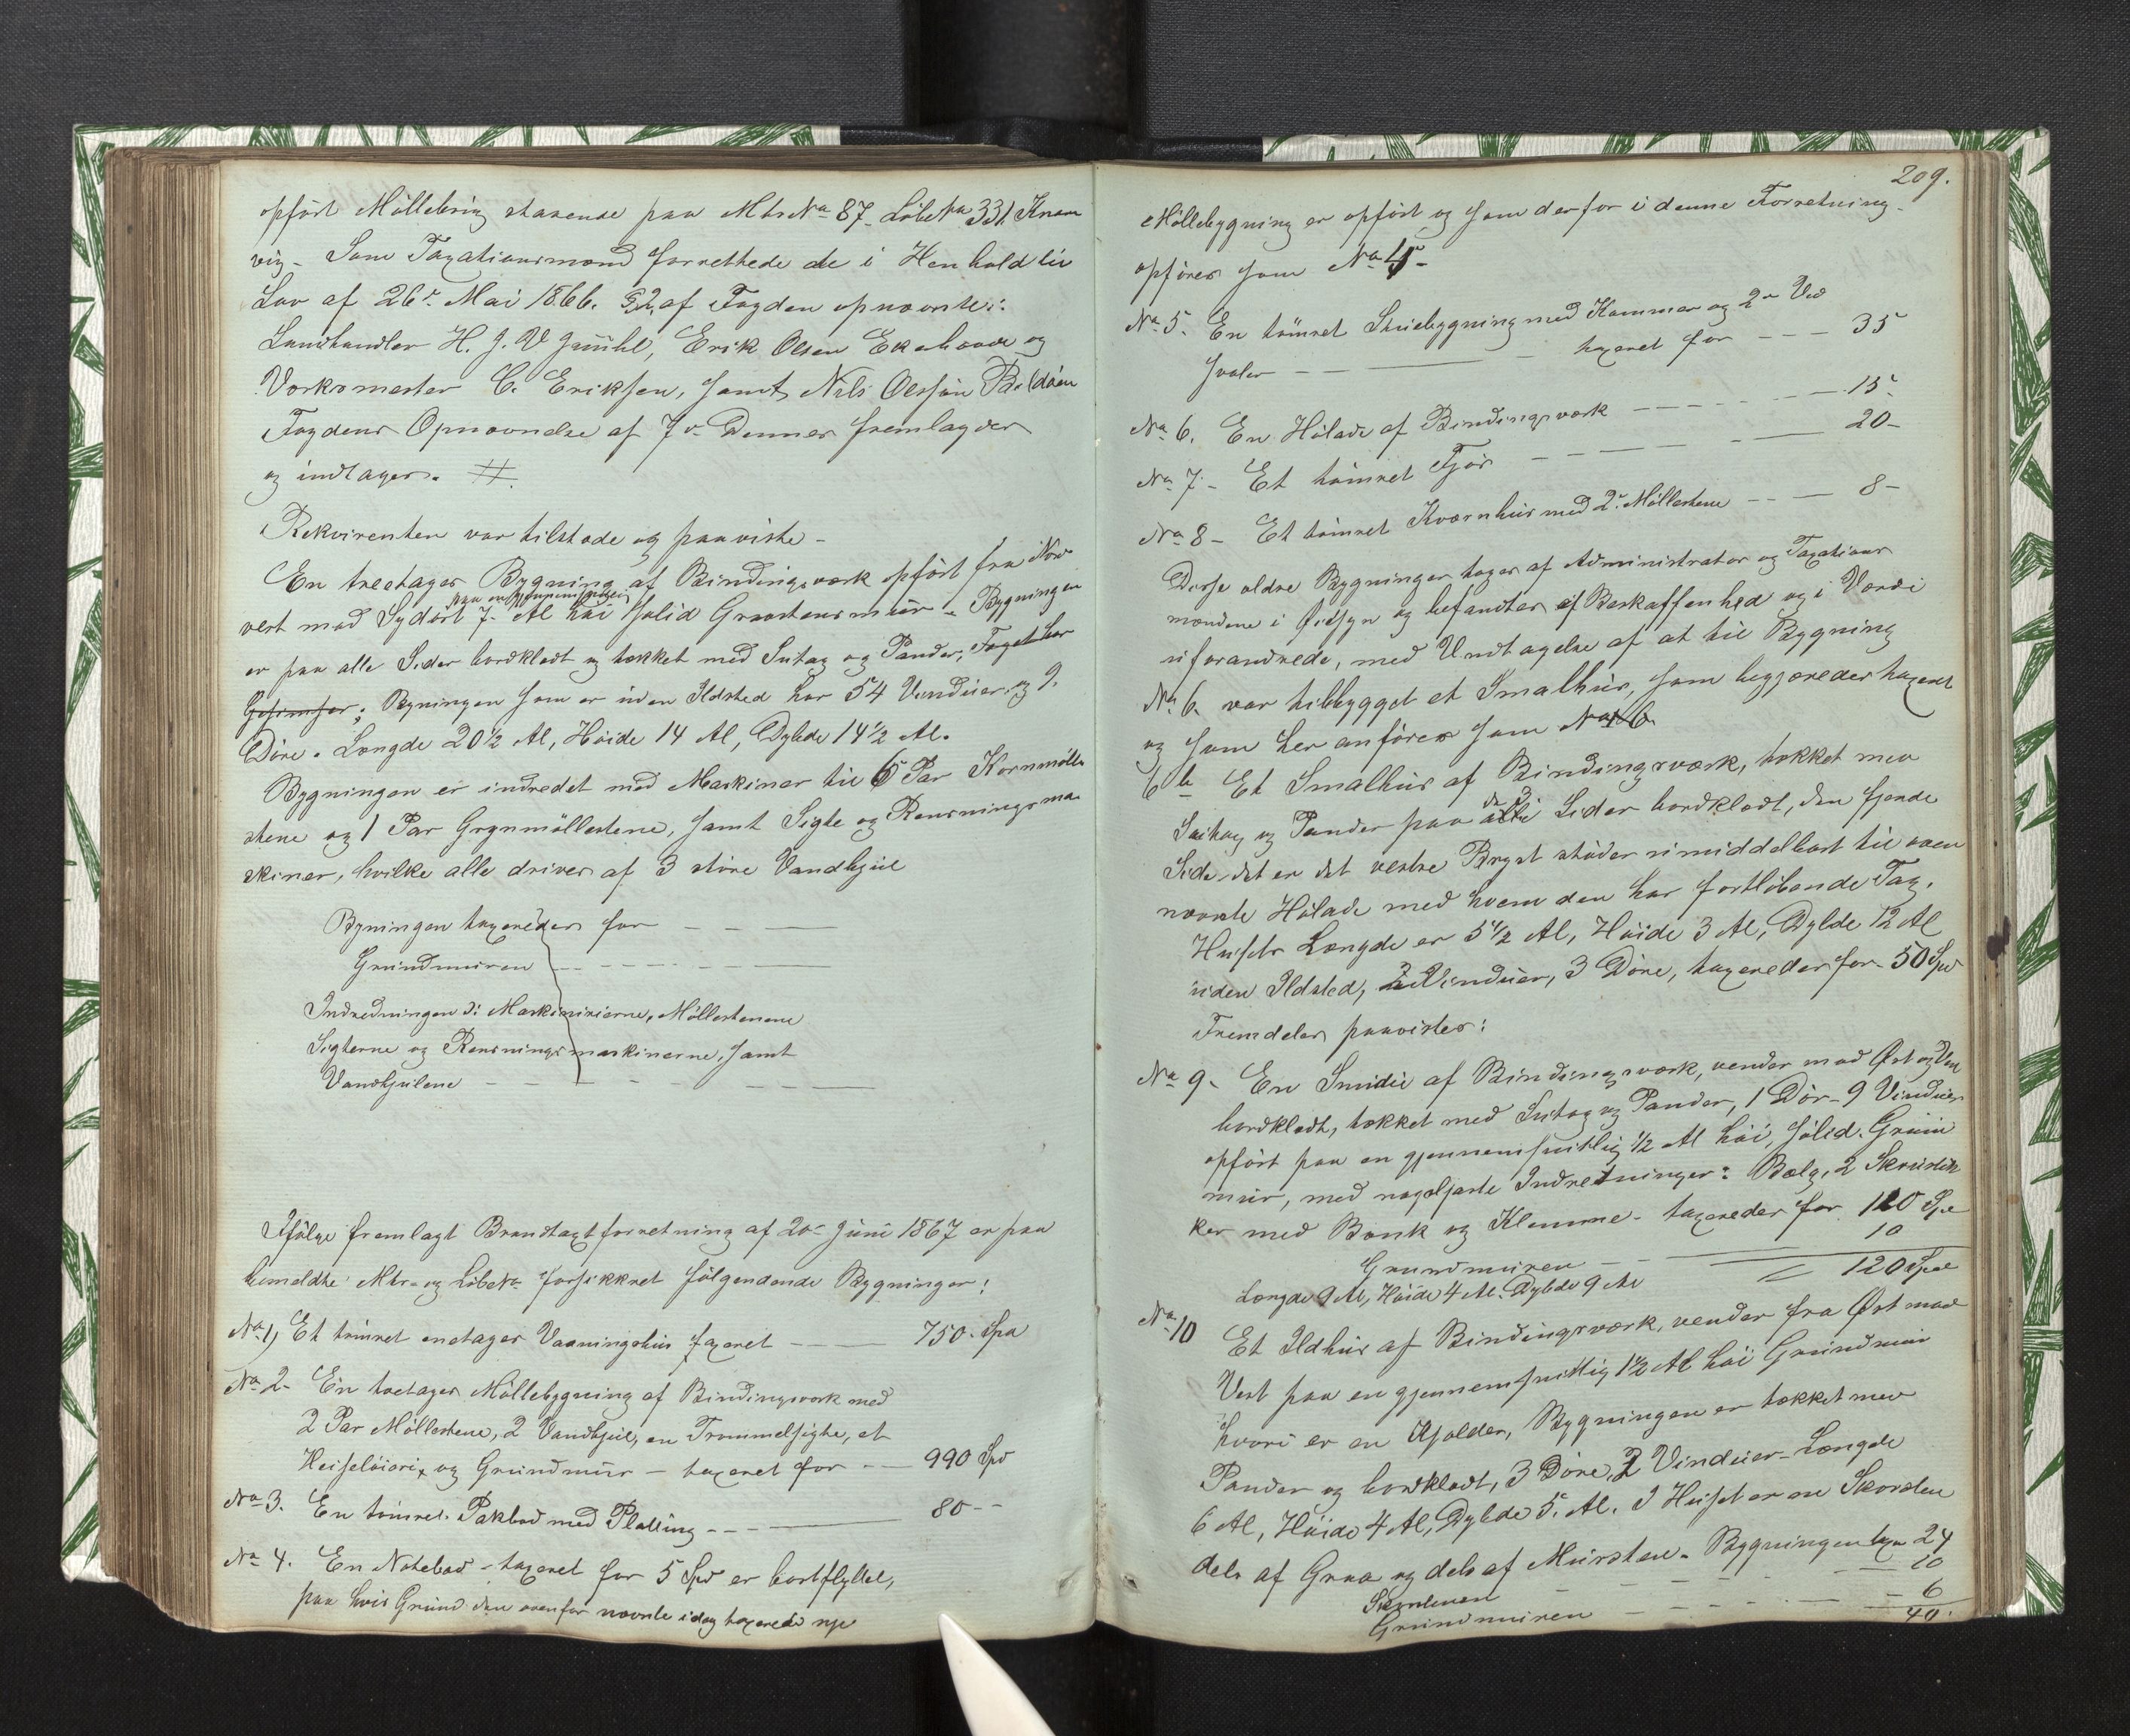 opført Møllebrug staaende paa Mtr No 87 Løbe No 331 Knar
vig – Som Taxationsmænd forrettede de i Henhold til
Lov af 26de Mai 1866. §2, af Fogden opnævnte:
Landhandler H. J. , Erik Olsen Ekehovde og
Værksmester C. Eriksen, samt Nils Olessøn
Fogdens Opnævnelse af 7de Dennes fremlagdes
og indtages. #
Rekvirenten var tilstede og paaviste –
En treetages Bygning af Bindingsværk opført fra Nord
paa en gjennemsnitlig
vest mod Sydost 7 Al høi solid Graastensmuur – Bygningen
er paa alle Sider bordklædt og tækket med Sutag og Pander, Taget har
Gesimser; Bygningen som er uden Ildsted har 54 Vinduer og 9
Døre. Længde 20½ Al, Høide 14 Al, Dybde 14½ Al.
Bygningen er indredet med Maskiner til 6 Par Kornmølle
stene og 1 Par Grynmøllestene, samt Sigte og Rensningsma
skiner, hvilke alle drives af 3 store Vandhjul
Bygningen taxeredes for – – –
Grundmuren – – – –
Indredningen d: Maskinerierne, Møllestenene
Sigterne og Rensningsmaskinerne, samt
Vandhjulene – – – –
Ifølge fremlagt Brandtaxtforretning af 20de Juni 1867 er paa
bemeldte Mtr- og Løbe No forsikkret følgendende Bygninger:
No 1, Et tømret enetages Vaaningshus taxeret – – – 750 Spd
No 2 – En toetages Møllebygning af Bindingsværk med
2 Par Møllestene, 2 Vandhjul, en Trommelsigte, et
og Grundmur – taxeret for – – 990 Spd
No 3. En tømret Pakbod med Platting – – – 80 – –
No 4. En Notebod – taxeret for 5 Spd er bortflyttet,
paa hvis Grund den ovenfor nævnte idag taxerede nye
209.
Møllebygning er opført og som derfor i denne Forretning
opføres som No 4 –
No 5. En tømret Stuebygning med Kammer og 2de Ved
svaler – – taxeret for – – – 35
No 6. En Hølade af Bindingsværk – – – – 15
No 7 – Et tømret Fjøs – – – – 20 –
No 8 – Et tømret Kværnhus med 2de Møllestene – – – 8 –
Disse ældre Bygninger toges af Administrator og Taxations
mændene i Øiesyn og befandtes af Beskaffenhed og i Værdi
uforandrede, med Undtagelse af at til Bygning
No 6. var tilbygget et Smalhus, som begjæredes taxeret
og som her anføres som No 6
6 b Et Smalhus af Bindingsværk, tækket med
de 3
Sutag og Pander paa alle Sider bordklædt, den fjerde
Side, det er det vestre Bryst støder umiddelbart til oven
nævnte Hølade med hvem den har fortløbende Tag.
Husets Længde er 5½ Al, Høide 3 Al, Dybde 12 Al
uden Ildsted, 2 Vinduer, 3 Døre, taxeredes for 50 Spd
Fremdeles paavistes:
No 9 – En Smidie af Bindingsværk, vender mod Øst og Vest
bordklædt, tækket med Sutag og Pander, 1 Dør – 9 Vinduer
opført paa en gjennemsnitlig ½ Al høi, solid Grund
mur, med nagelfaste Indretninger: Bælg, 2 Skruestik
ker med Bænk og Klemme – taxeredes for 110 Spd
Grundmuren – – 10
= 120 Spd
Længde 9 Al, Høide 4 Al. Dybde 9 Al
No 10 Et Ildhus af Bindingsværk, vender fra Øst mod
Vest paa en gjennemsnitlig 1½ Al høi Grundmur
hvori er en Kjelder, Bygningen er tækket med
Pander og bordklædt, 3 Døre, 2 Vinduer – Længde
6 Al, Høide 4 Al, Dybde 5 Al. I Huset er en Skorsten
dels af Graa og dels af Mursten – Bygningen tax 24
Skorstenen – – – – 10
Grundmuren – – – – 6
40.